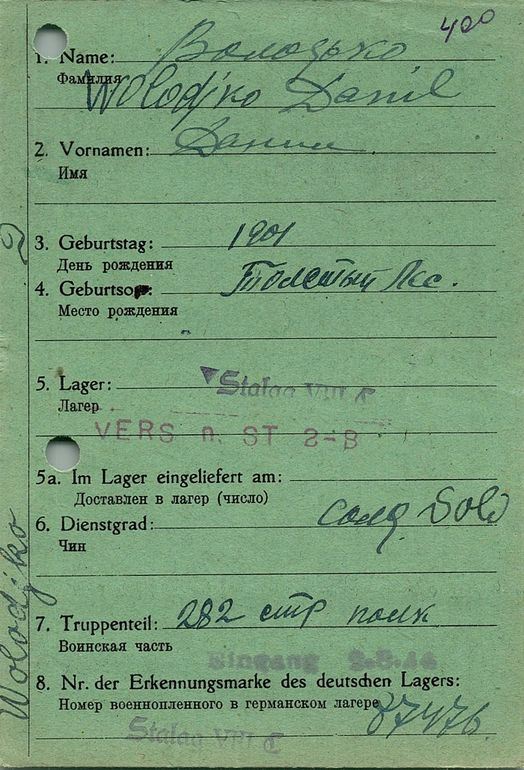 400
1. Name: Володько
Фамилия Wolodjko Danil
2. Vornamen: Данил
Имя
3. Geburtstag: 1901
День рождения
4. Geburtsort: Толстый Лес.
Место рождения
5. Lager: Stalag VIII C
Лагер
VERS n. ST 2-B
5a. Im Lager eingeliefert am:
Доставлен в лагер (число)
6. Dienstgrad: солд. Sold
Чин
7. Truppenteil: 282 стр полк
Воинская часть
Eingang
8. Nr. der Erkennungsmarke des deutschen Lagers:
Номер военнопленного в германском лагере 87476.
Stalag VIII C
Wolodjko